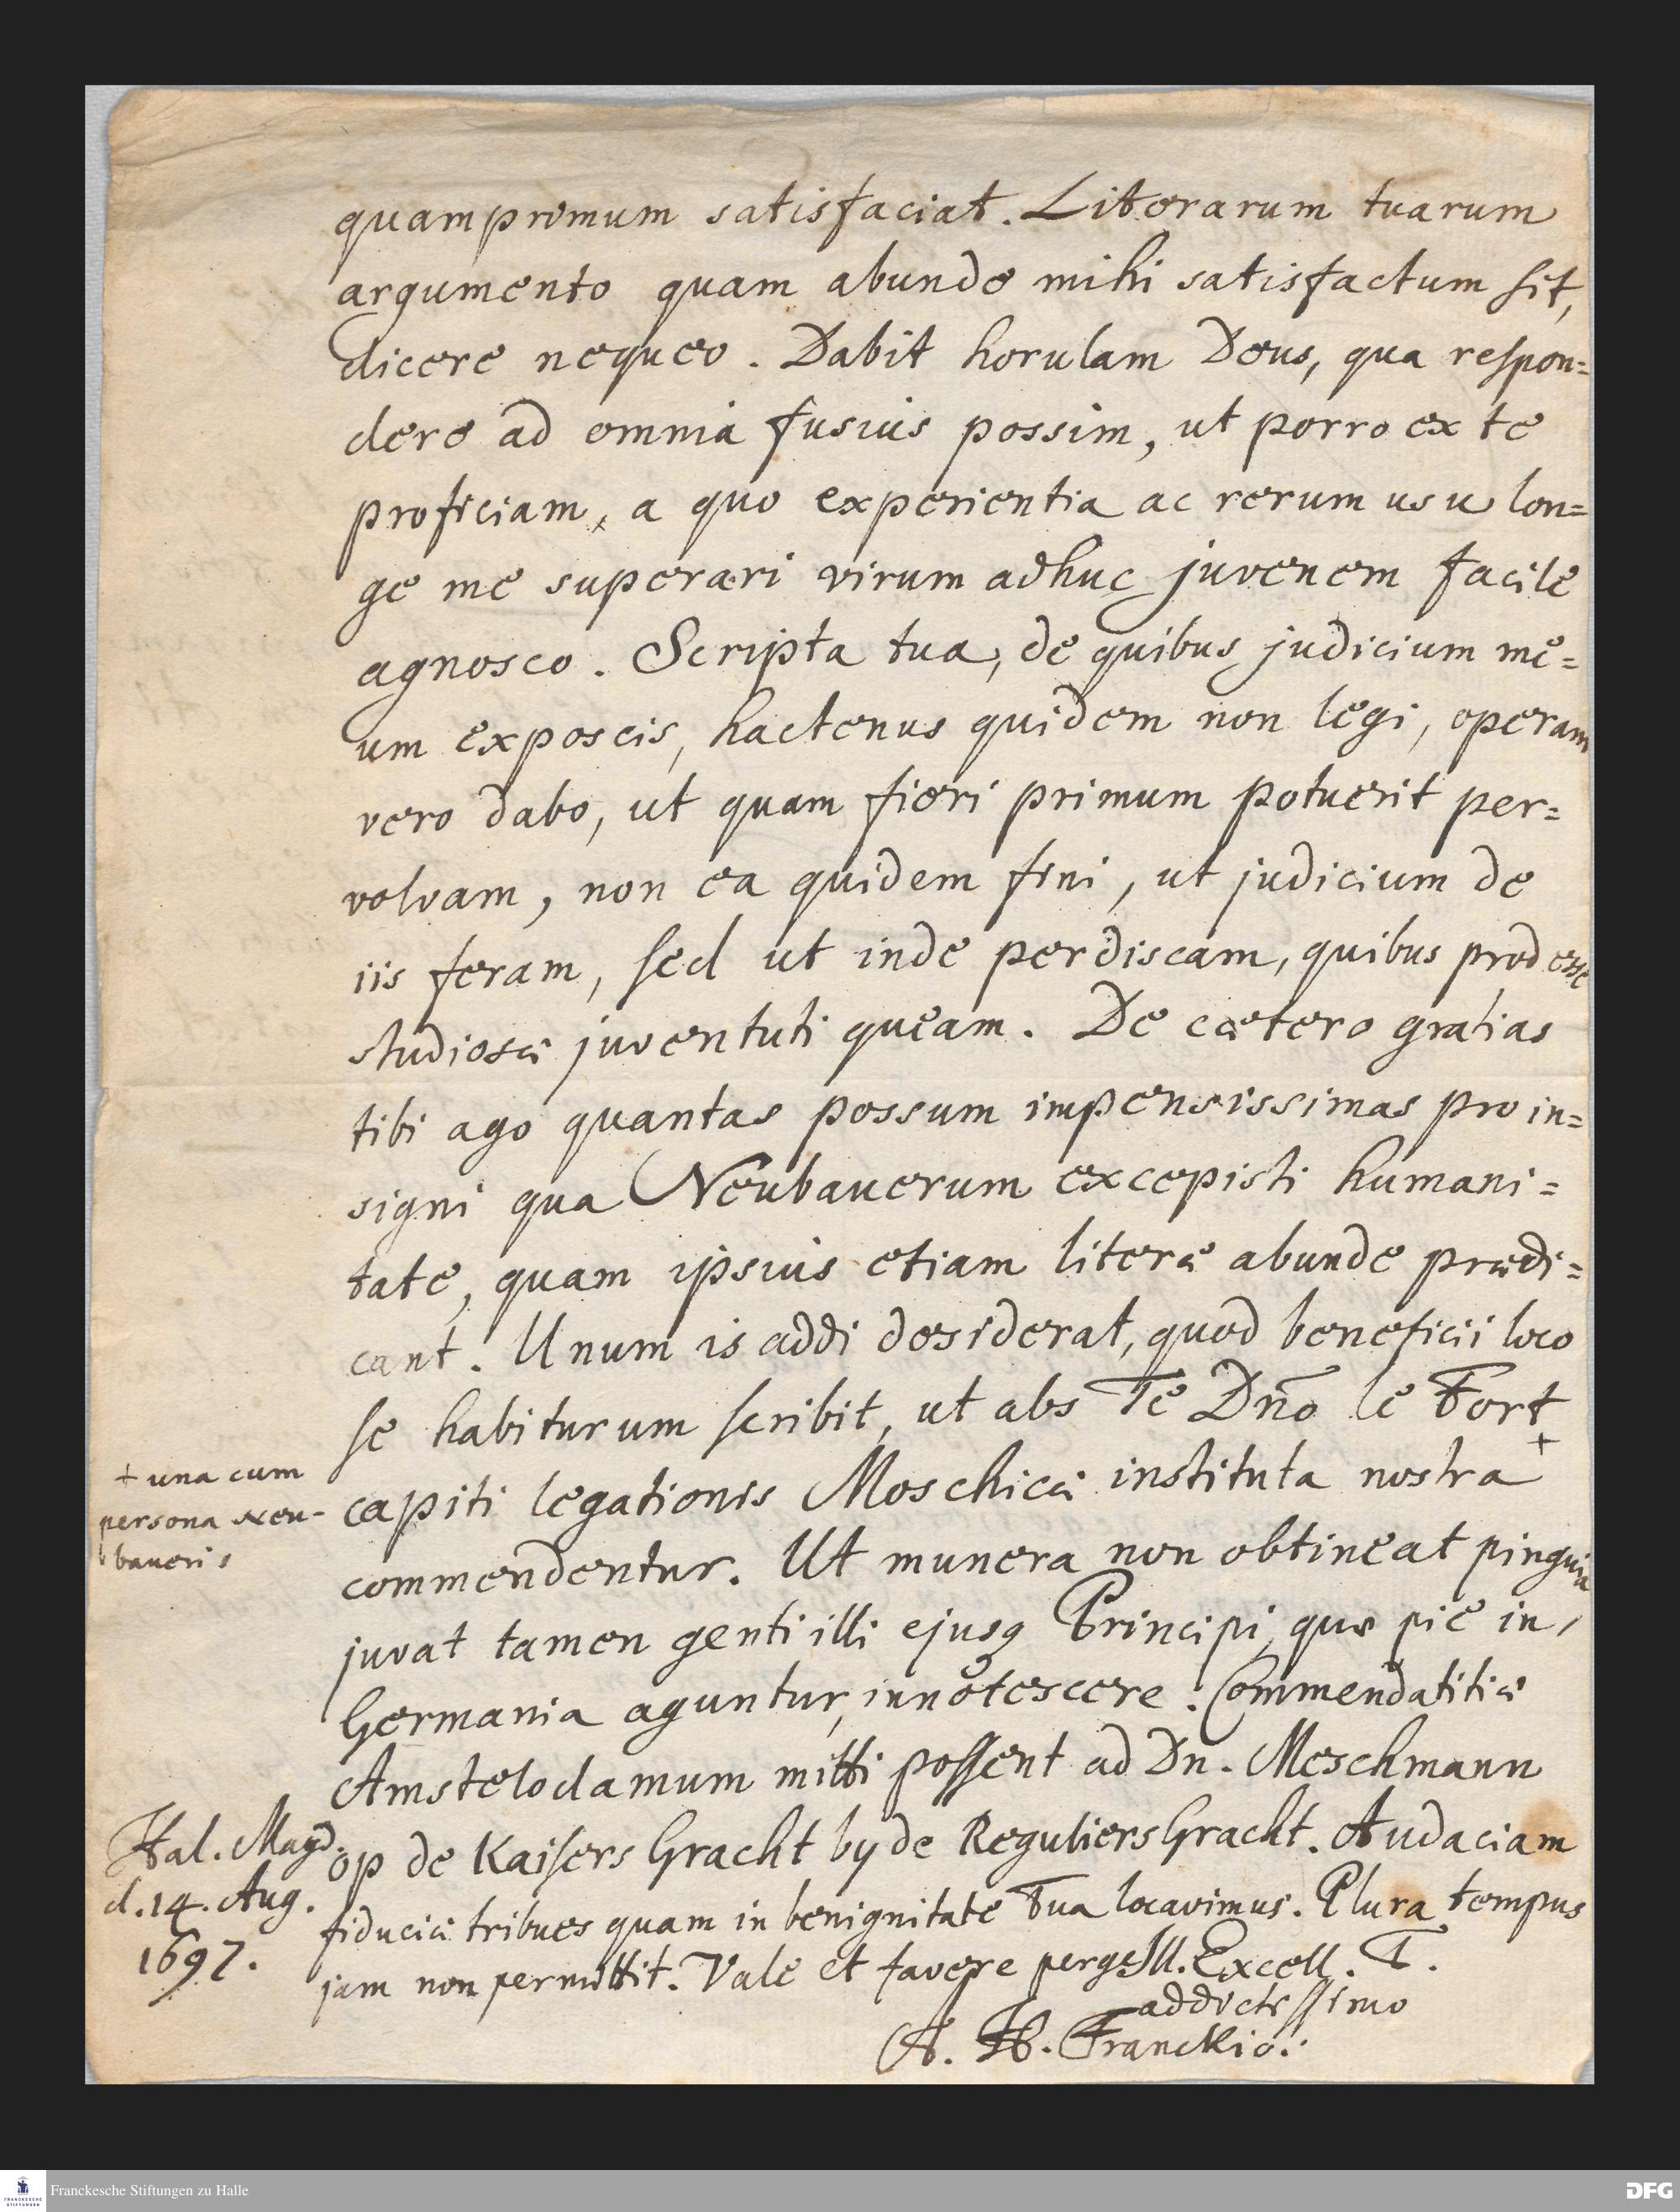 quamprimum satisfaciat. Literarum tuarum
argumento quam abunde mihi satisfactum sit,
dicere nequeo. Dabit horulam Deus, qua respon=
dere ad omnia fusius possim, ut porro ex te
proficiam, a quo experientia ac rerum usu lon=
ge me superari virum adhuc juvenem facile
agnosco. Scripta tua, de quibus judicium me=
um exposcis, hactenus quidem non legi, operam
vero dabo, ut quam fieri primum potuerit per=
volvam, non ea quidem fini, ut judicium de
iis feram, sed ut inde perdiscam, quibus prodesse
studiosæ juventuti queam. De cætero gratias
tibi ago quantas possum impensissimas pro in=
signi qua Neubauerum excepisti humani=
tate, quam ipsius etiam literæ abunde prædi=
cant. Unum is addi desiderat, quod beneficii loco
se habiturum scribit, ut abs Te Dn̄o le Fort
capiti legationis Moschicæ instituta nostra +
+ una cum
persona Neu-
baueri
commendentur. Ut munera non obtineat pinguia
juvat tamen genti illi ejusq Principi, quæ pie in
Germania aguntur, innotescere. Commendatitiæ
Amstelodamum mitti possent ad Dn. Meschmann
op de Kaisers Gracht by de Reguliers Gracht. Audaciam
fiduciæ tribues quam in benignitate Tua locavimus. Plura tempus
jam non permittit. Vale et favere perge Ill. Excell. T.
addictissimo
A. H. Franckio.
Hal. Magd.
d. 14. Aug.
1697.
FRANCKESCHE
STIFTUNGEN
Franckesche Stiftungen zu Halle
DFG